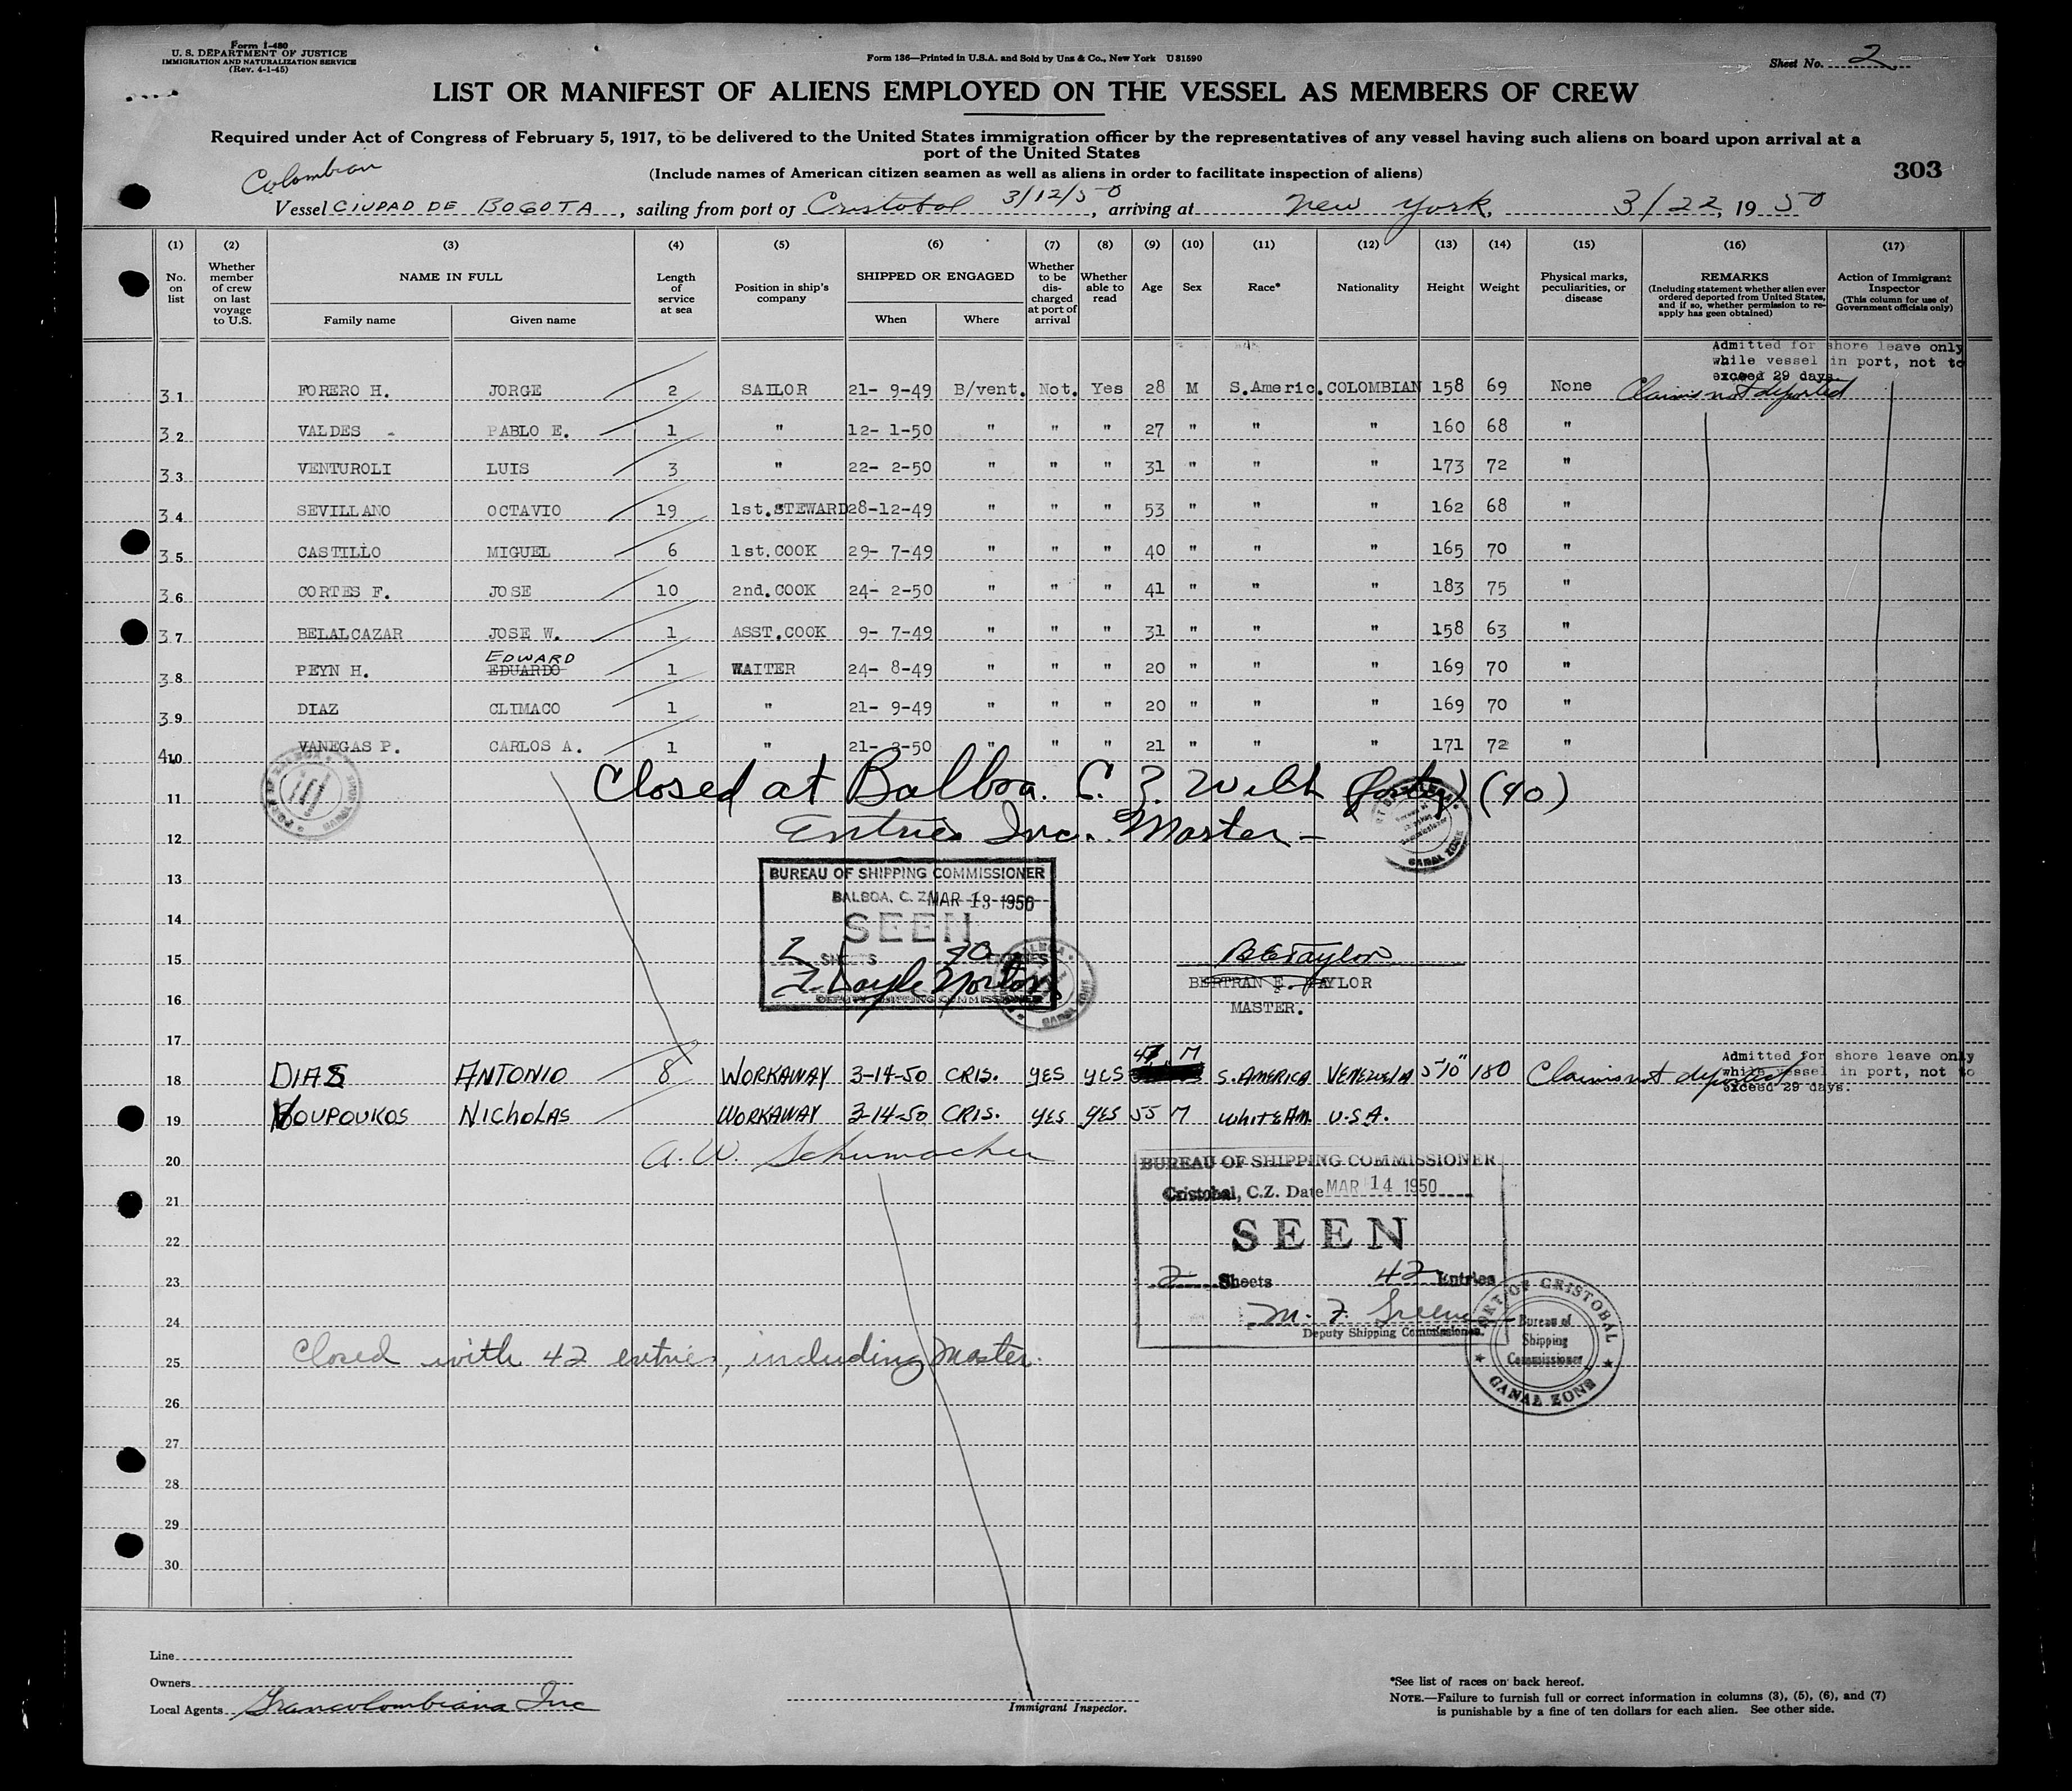 Form I-480
U. S. DEPARTMENT OF JUSTICE
IMMIGRATION AND NATURALIZATION SERVICE
(Rev. 4-1-45)
Form 136—Printed in U.S.A. and Sold by Unz & Co., New York U 81590
Sheet No. 2
LIST OR MANIFEST OF ALIENS EMPLOYED ON THE VESSEL AS MEMBERS OF CREW
Required under Act of Congress of February 5, 1917, to be delivered to the United States immigration officer by the representatives of any vessel having such aliens on board upon arrival at a
port of the United States
(Include names of American citizen seamen as well as aliens in order to facilitate inspection of aliens)
303
Colombian
Vessel CIUDAD DE BOGOTA, sailing from port of Cristobal 3/12/50, arriving at New York, 3/22, 1950
(1) (2) (3) (4) (5) (6) (7) (8) (9) (10) (11) (12) (13) (14) (15) (16) (17)
No. on list
Whether member of crew on last voyage to U.S.
NAME IN FULL
Family name
Given name
Length of service at sea
Position in ship's company
SHIPPED OR ENGAGED
When
Where
Whether to be discharged at port of arrival
Whether able to read
Age
Sex
Race*
Nationality
Height
Weight
Physical marks, peculiarities, or disease
REMARKS
(Including statement whether alien ever ordered deported from United States, and if so, whether permission to re-apply has geen obtained)
Action of Immigrant Inspector
(This column for use of Government officials only)
Admitted for shore leave only
while vessel in port, not to
exceed 29 days.
31 FORERO H. JORGE 2 SAILOR 21- 9-49 B/vent. Not. Yes 28 M S.Americ. COLOMBIAN 158 69 None Claims not deported
32 VALDES - PABLO E. 1 " 12- 1-50 " " " 27 " " " 160 68 "
33 VENTUROLI LUIS 3 " 22- 2-50 " " " 31 " " " 173 72 "
34 SEVILLANO OCTAVIO 19 1st.STEWARD 28-12-49 " " " 53 " " " 162 68 "
35 CASTILLO MIGUEL 6 1st.COOK 29- 7-49 " " " 40 " " " 165 70 "
36 CORTES F. JOSE 10 2nd.COOK 24- 2-50 " " " 41 " " " 183 75 "
37 BELALCAZAR JOSE W. 1 ASST.COOK 9- 7-49 " " " 31 " " " 158 63 "
EDWARD
38 PEYN H. EDUARDO 1 WAITER 24- 8-49 " " " 20 " " " 169 70 "
39 DIAZ CLIMACO 1 " 21- 9-49 " " " 20 " " " 169 70 "
40 VANEGAS P. CARLOS A. 1 " 21- -50 " " " 21 " " " 171 72 "
Closed at Balboa. C. Z. With (forty) (40)
11
Entries Inc. Master -
12
CANAL ZONE
13
BUREAU OF SHIPPING COMMISSIONER
BALBOA, C. Z. MAR 13 1950
14
SEEN
15
2 SHEETS 40
BETaylor
BERTRAN E. TAYLOR
MASTER.
DEPUTY SHIPPING COMMISSIONER
CANAL ZONE
16
17
47 M
Admitted for shore leave only
while vessel in port, not to
exceed 29 days.
18 DIAS ANTONIO 8 WORKAWAY 3-14-50 CRIS. YES YES S. AMERICA VENEZUELA 5'10" 180 Claims not deported
19 VOUPOUKOS NICHOLAS WORKAWAY 3-14-50 CRIS. YES YES 55 M WHITE AM. U.S.A.
20 A. W. Schumacher
BUREAU OF SHIPPING COMMISSIONER
Cristobal, C.Z. Date MAR 14 1950
21
SEEN
22
23
2 Sheets 42 Entries
24
Deputy Shipping Commissioner
PORT OF CRISTOBAL
Bureau of
Shipping
Commissioner
CANAL ZONE
Closed with 42 entries, including Master.
25
26
27
28
29
30
Line
Owners
Local Agents Grancolombiana Inc
Immigrant Inspector.
*See list of races on back hereof.
NOTE.—Failure to furnish full or correct information in columns (3), (5), (6), and (7)
is punishable by a fine of ten dollars for each alien. See other side.